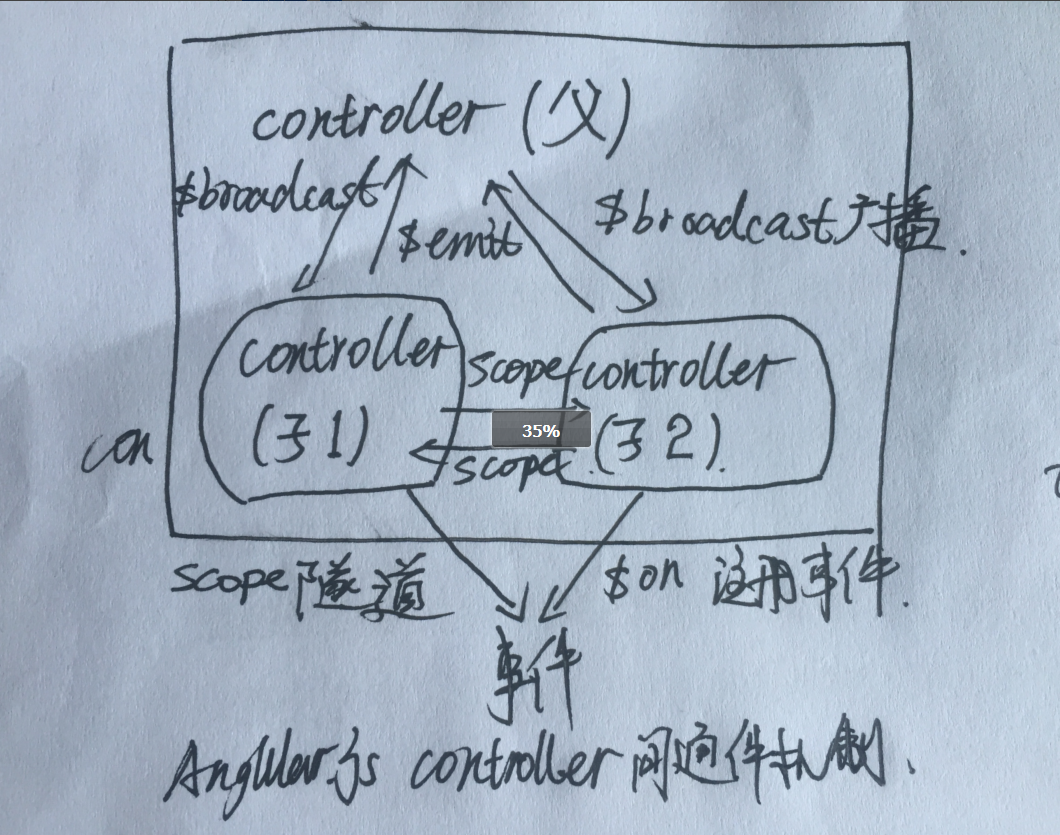 controller (父)
$broadcast
$emit
$broadcast广播.
controller
(子1)
scope
scope
controller
(子2).
35%
con
scope隧道
$on 注用事件.
事件
Angular js controller间通件机制.